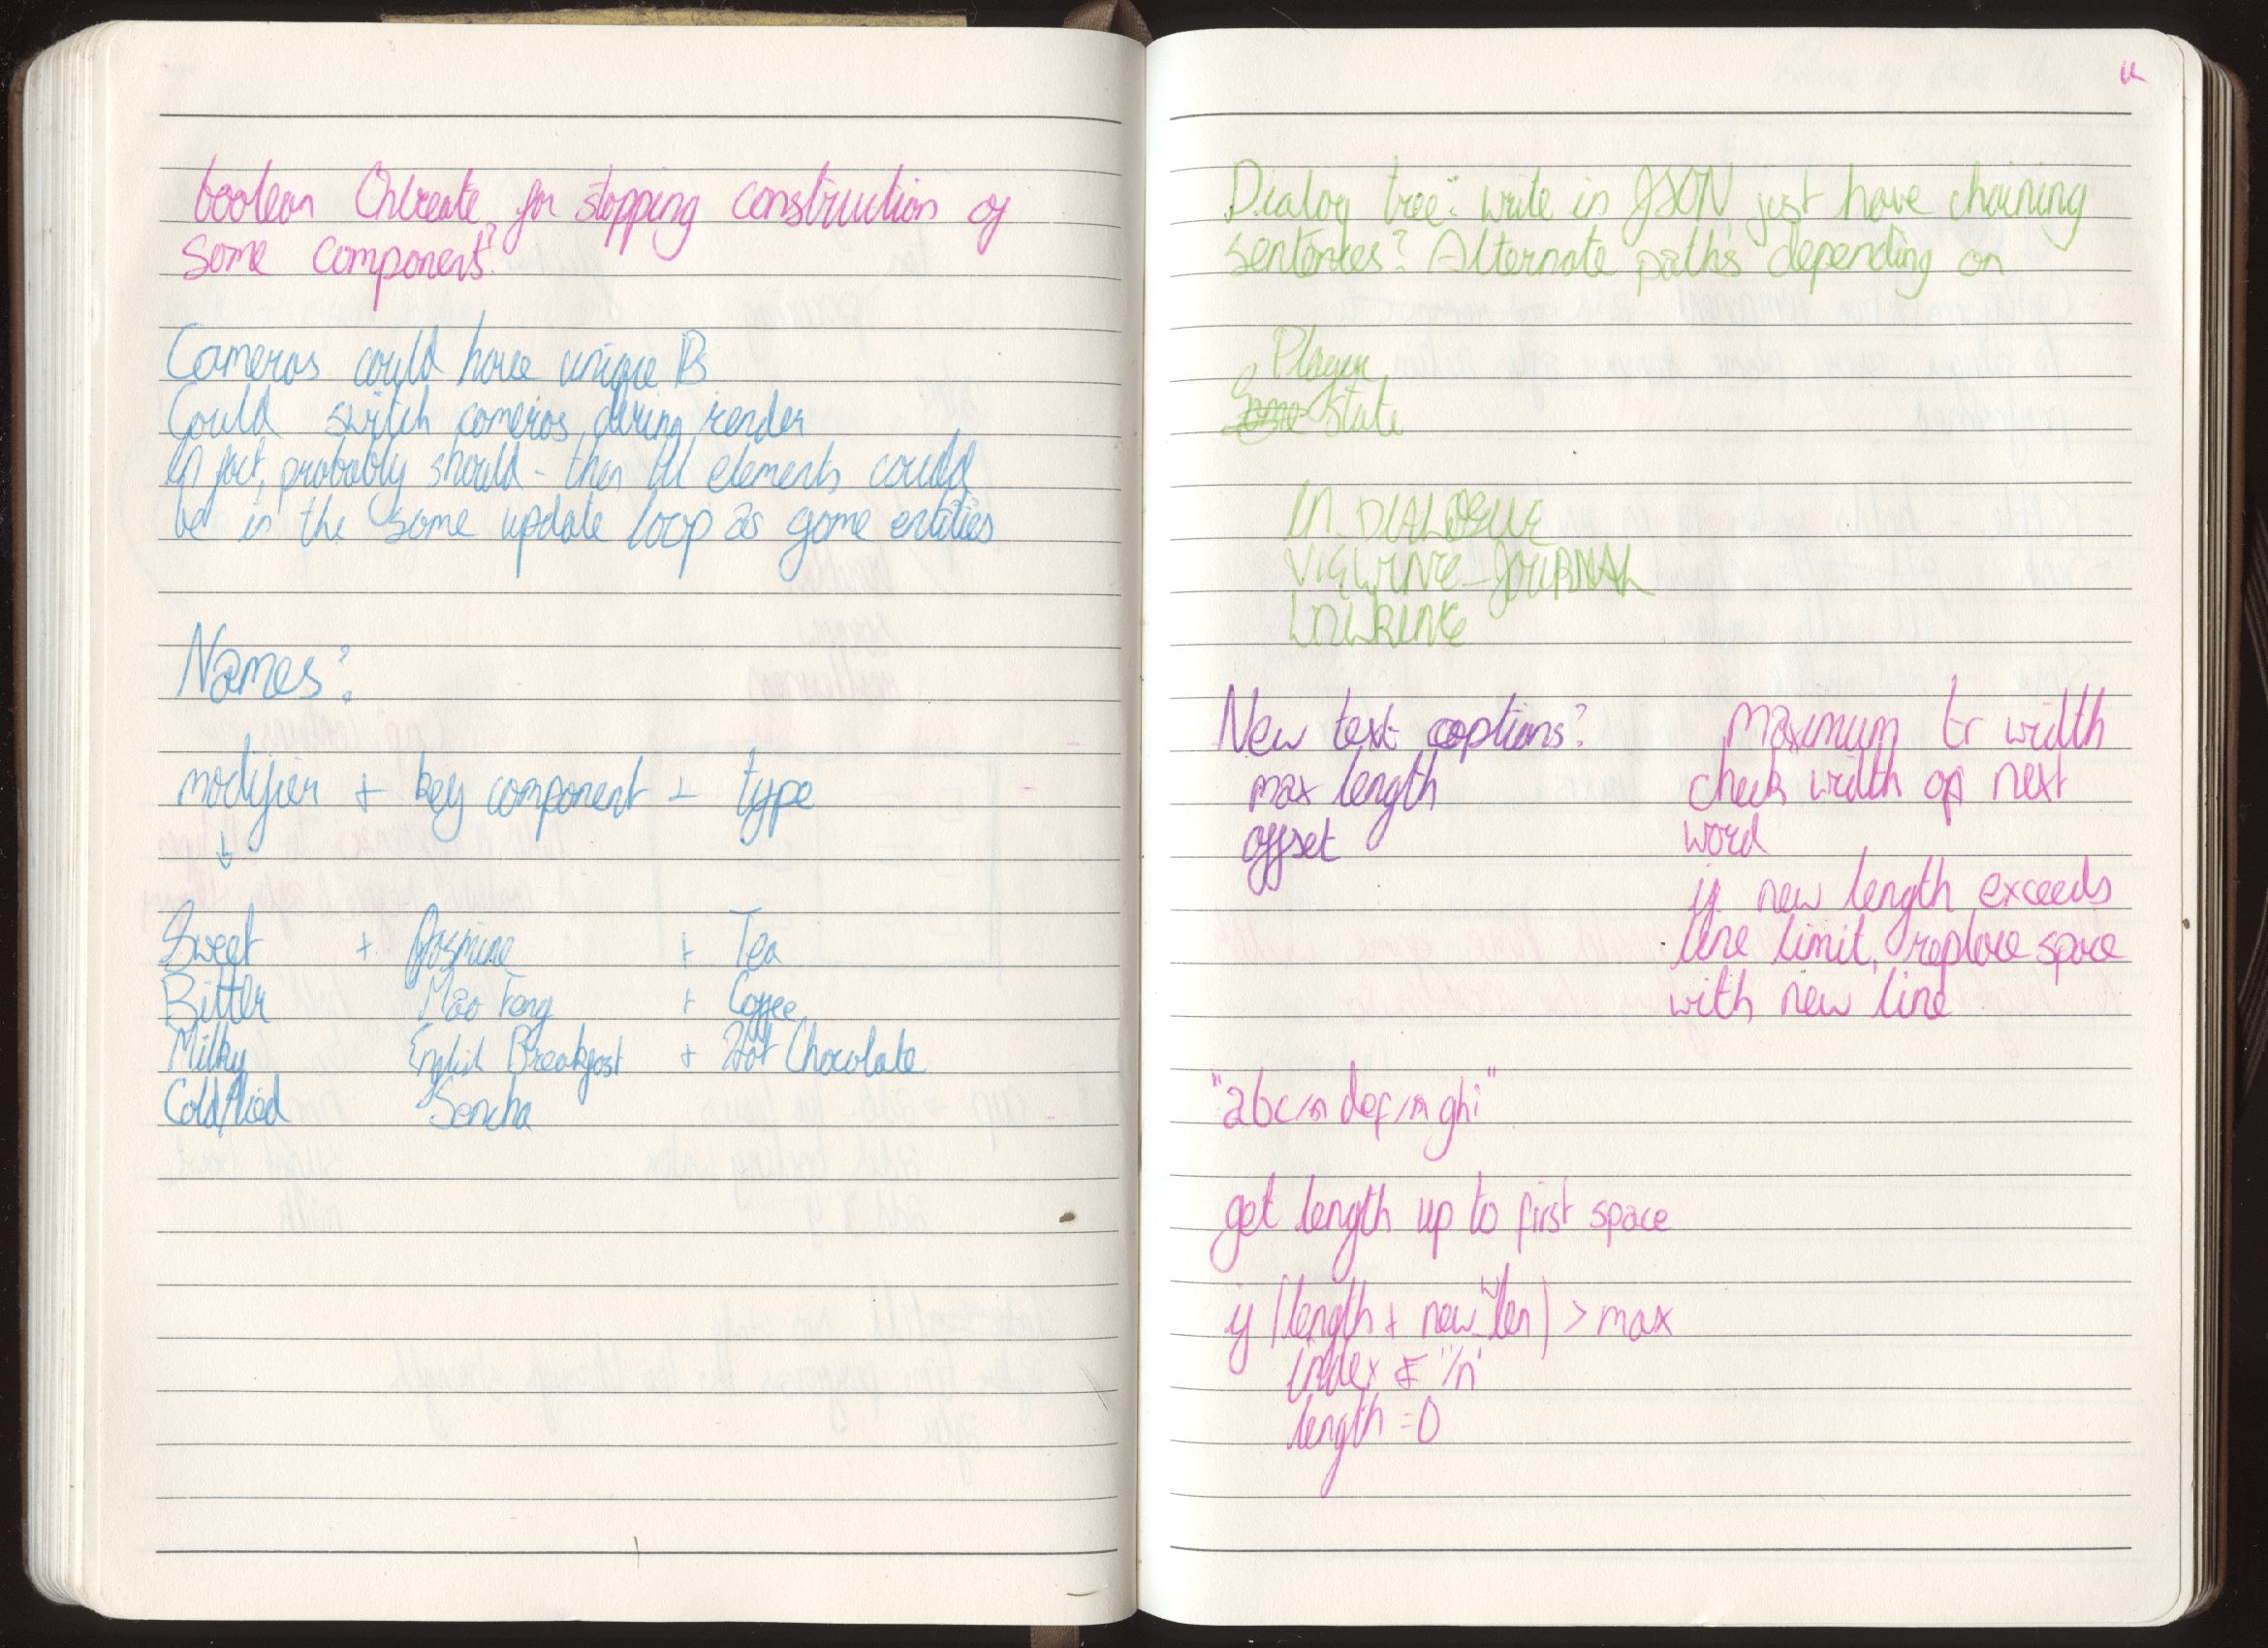 boolean OnCreate, for stopping construction of
some components?
Cameras could have unique IDs
Could switch cameras during render
In fact, probably should - then UI elements could
be in the same update loop as game entities
Names:
modifier + key component + type
↓
Sweet + Jasmine + Tea
Bitter Mao Feng + Coffee
Milky English Breakfast + Hot Chocolate
Cold/Iced Sencha
Dialog tree: write in JSON, just have chaining
sentences? Alternate paths depending on
Player
Some State
IN_DIALOGUE
VIEWING_JOURNAL
WALKING
New text options?
max length
offset
maximum tr width
check width of next
word
if new length exceeds
line limit, replace space
with new line
"abc/n def/n ghi"
get length up to first space
if (length + new w len) > max
index = '/n'
length = 0